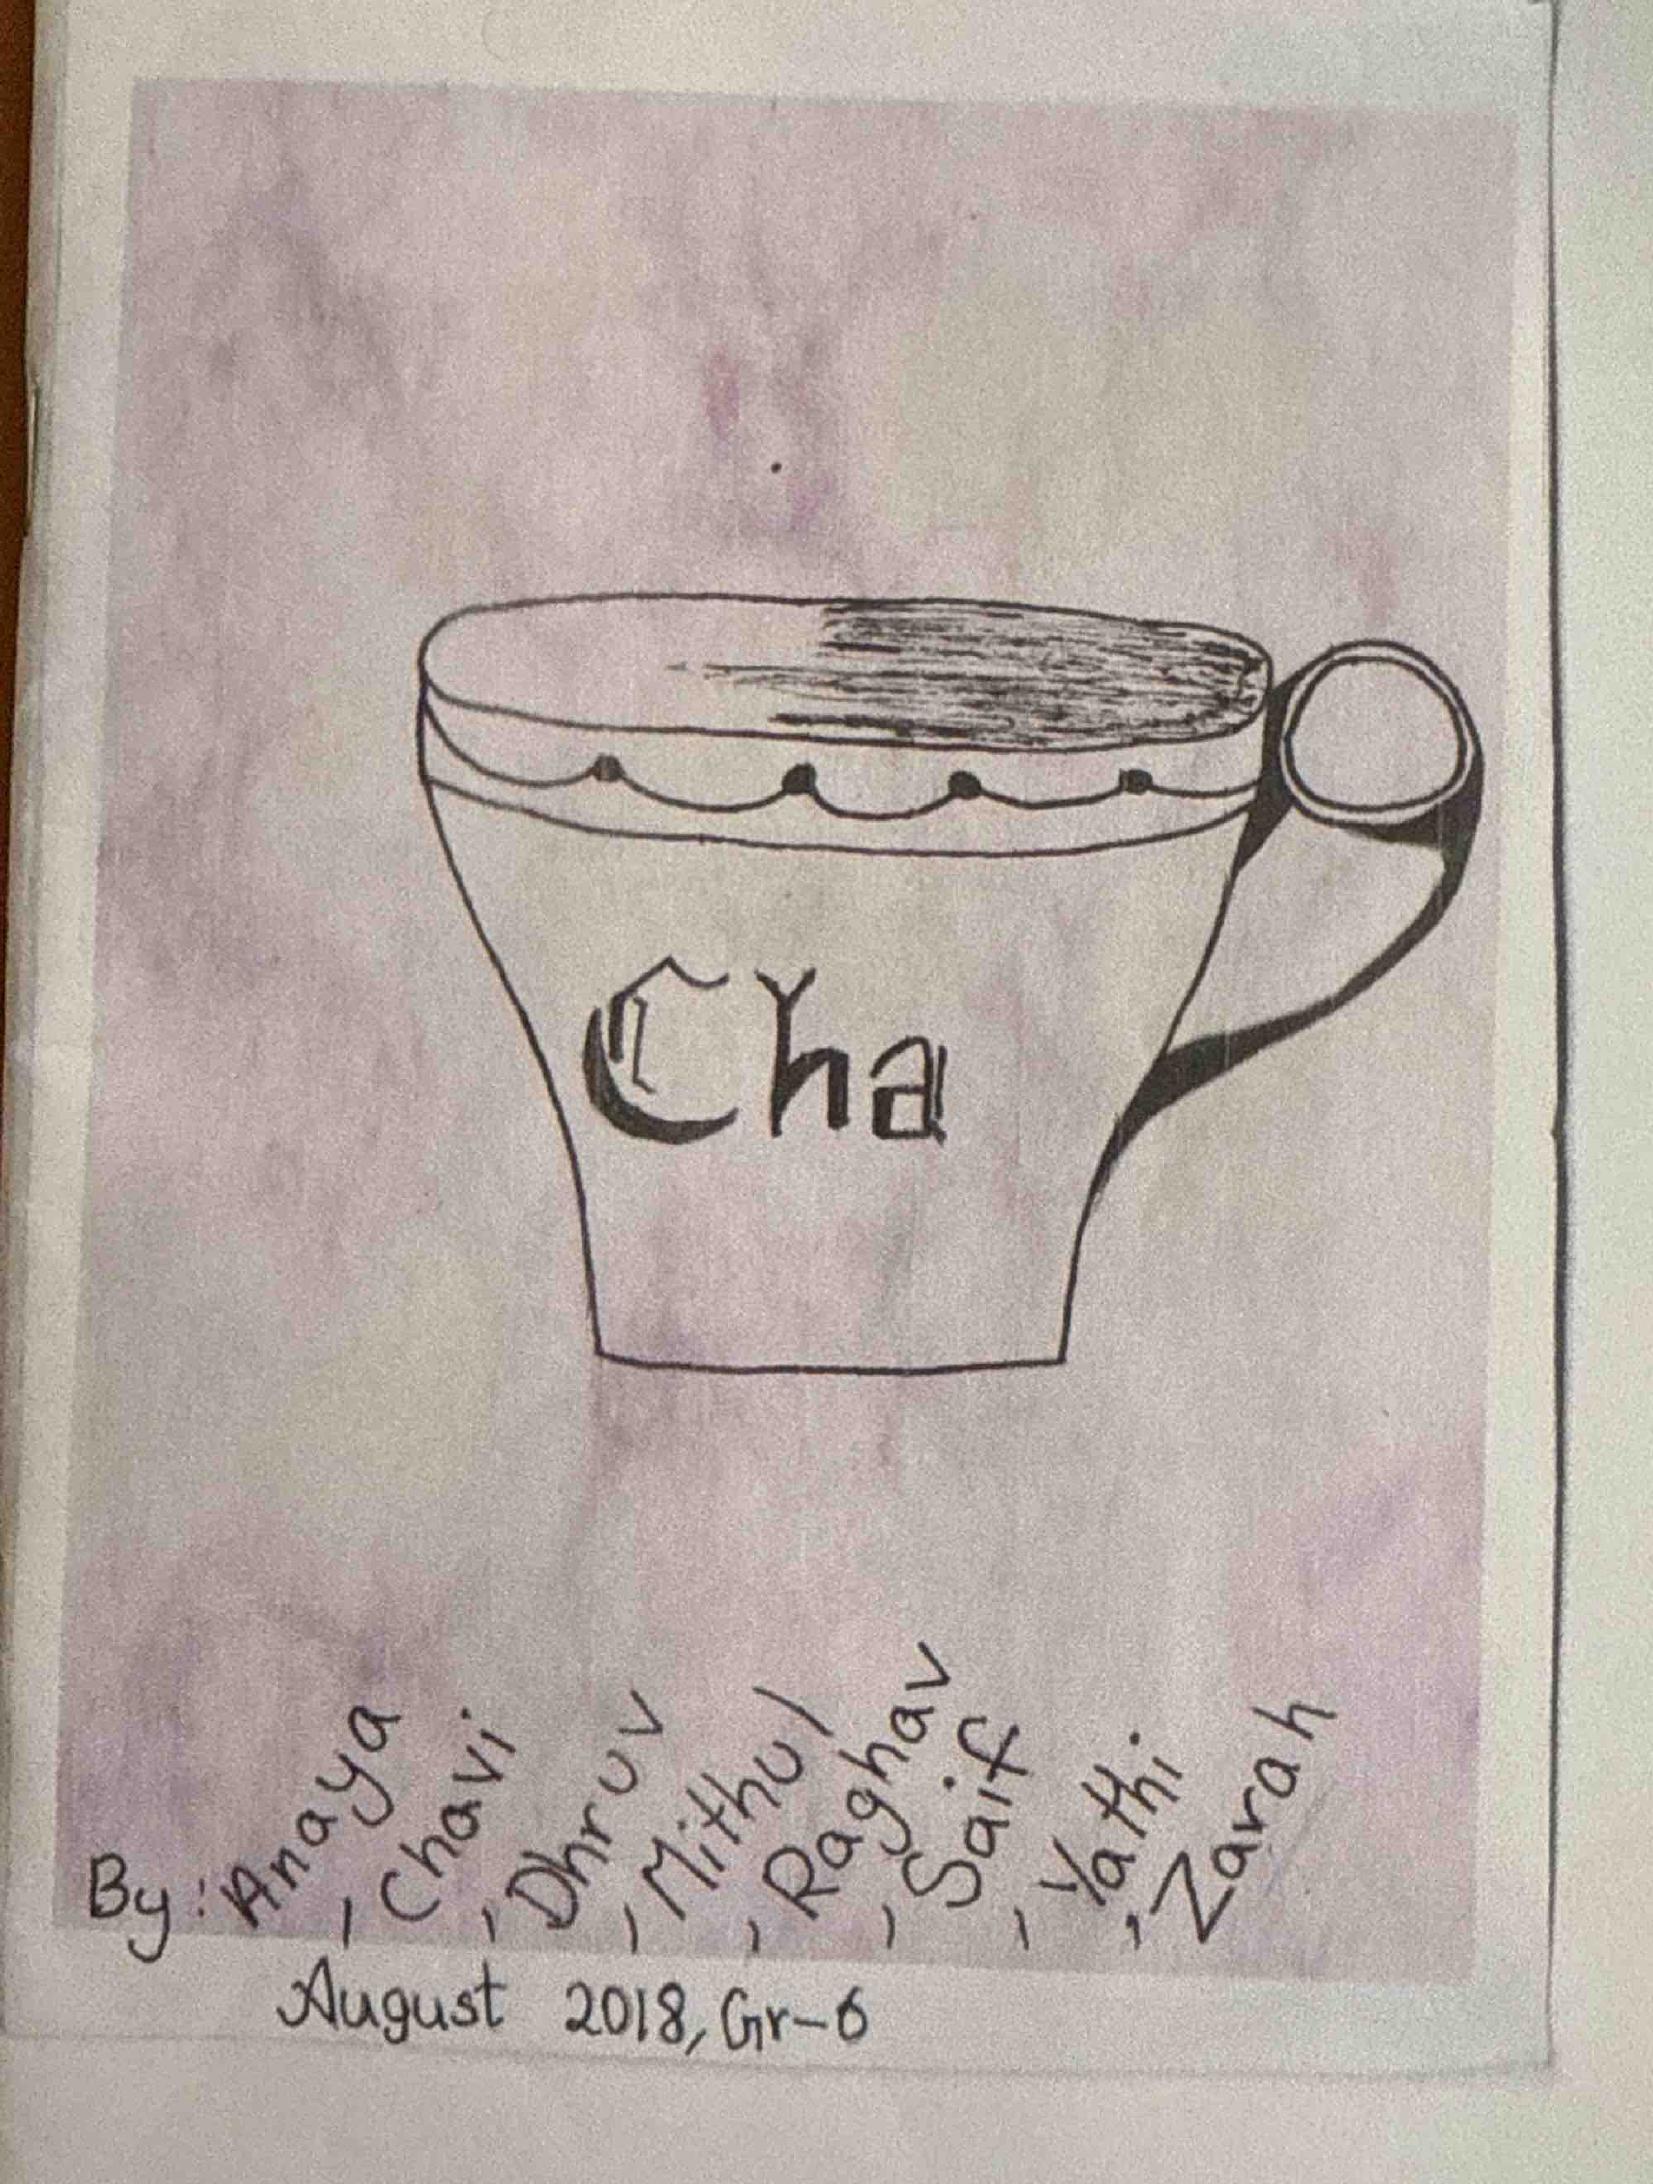 Cha
By: Anaya, Chavi, Dhruv, Mithul, Raghav, Saif, Yathi, Zarah
August 2018, Gr-6